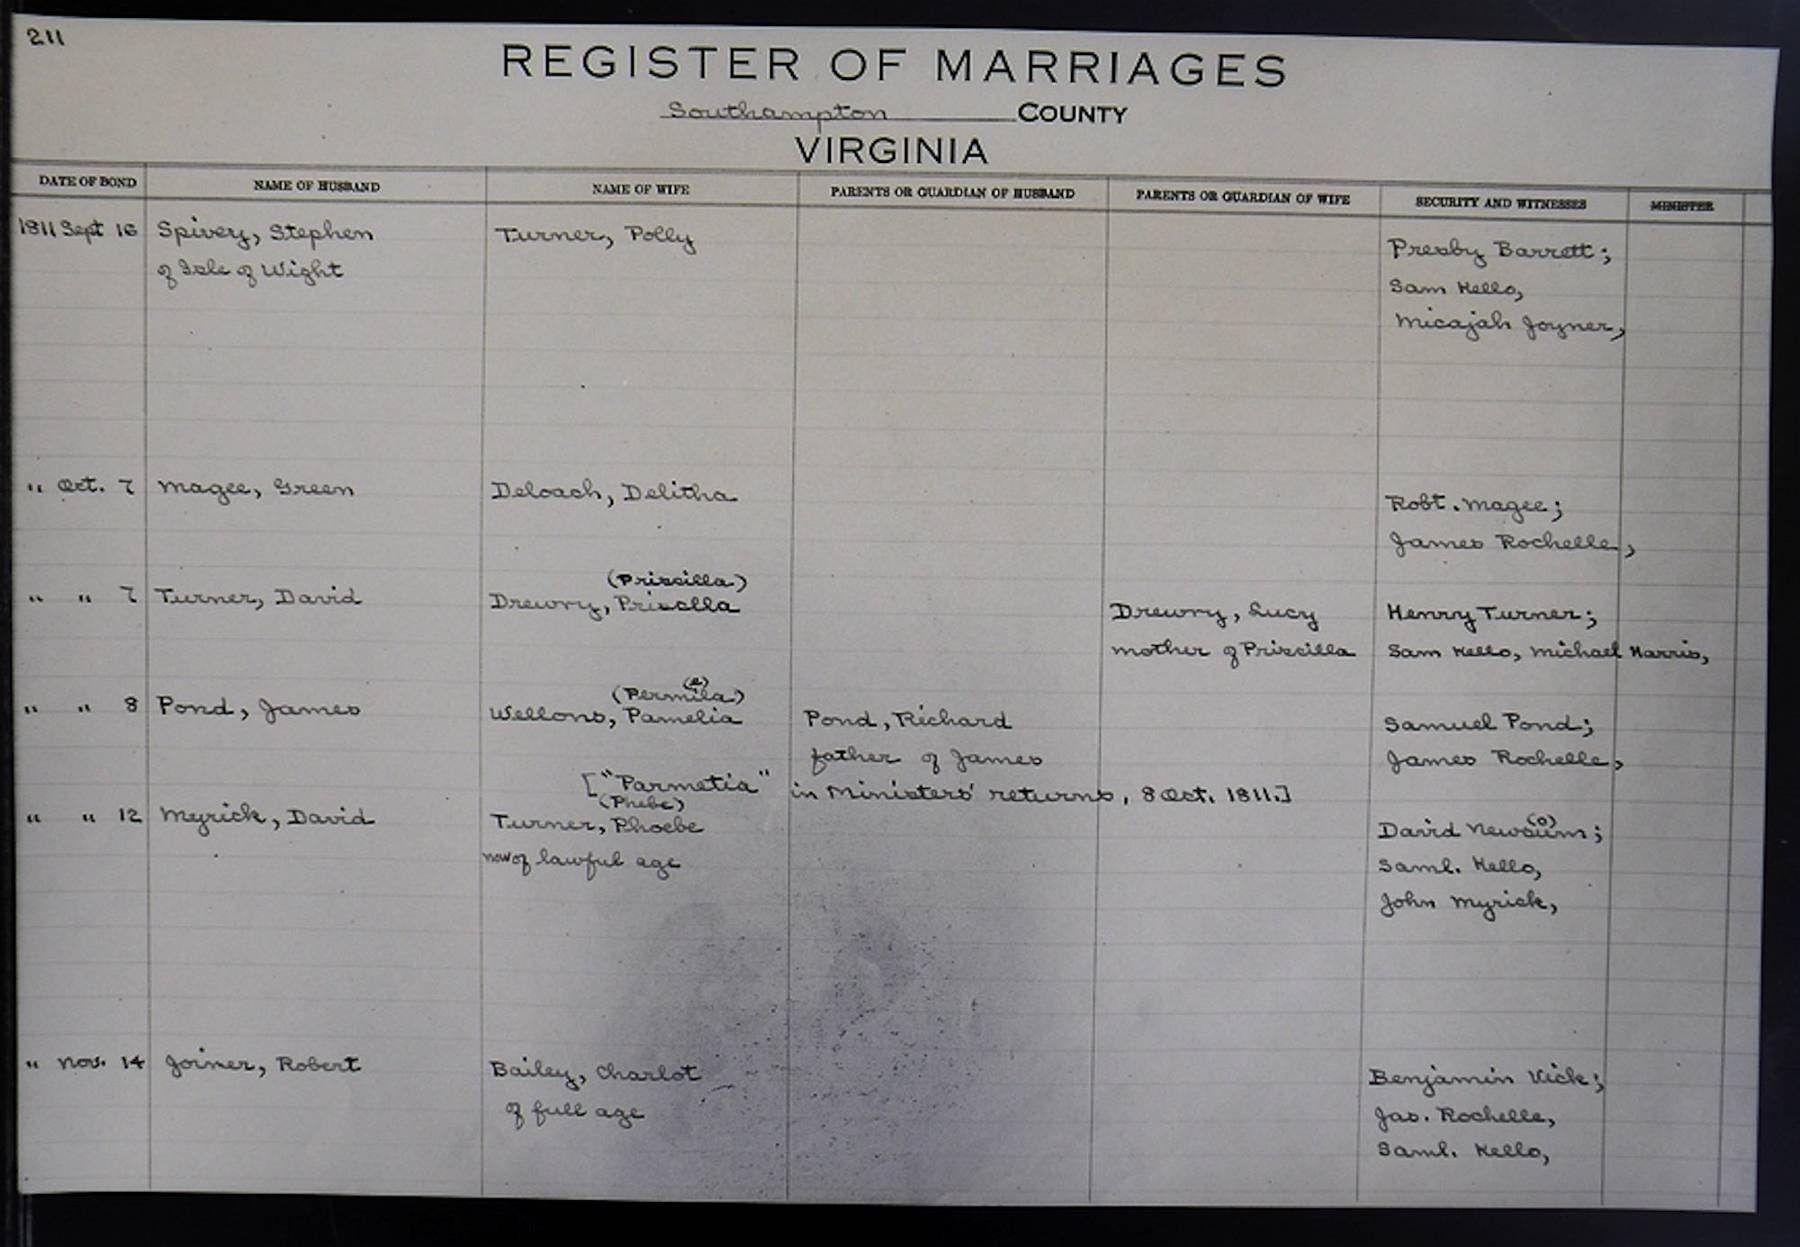 211
REGISTER OF MARRIAGES
Southampton COUNTY
VIRGINIA
DATE OF BOND NAME OF HUSBAND NAME OF WIFE PARENTS OR GUARDIAN OF HUSBAND PARENTS OR GUARDIAN OF WIFE SECURITY AND WITNESSES MINISTER
1811 Sept 16 Spivey, Stephen Turner, Polly Presby Barrett;
of Isle of Wight Sam Kello,
Micajah Joyner,
" Oct. 7 Magee, Green Deloach, Delitha Robt. Magee;
James Rochelle,
(Priscilla)
" " 7 Turner, David Drewry, Priscilla Drewry, Lucy Henry Turner;
mother of Priscilla Sam Kello, Michael Harris,
(e)
(Permila)
" " 8 Pond, James Wellons, Pamelia Pond, Richard Samuel Pond;
father of James James Rochelle,
["Parmetia" in Ministers' returns, 8 Oct. 1811.]
(Phebe) (o)
" " 12 Myrick, David Turner, Phoebe David Newsum;
now of lawful age Saml. Kello,
John Myrick,
" Nov. 14 Joiner, Robert Bailey, Charlot Benjamin Vick;
of full age Jas. Rochelle,
Saml. Kello,